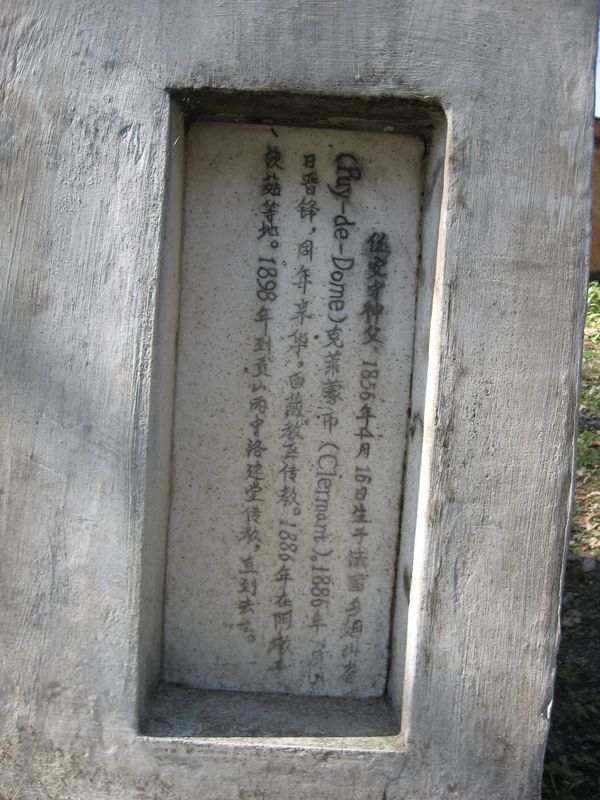 任安守神父 1856年 月16日生于法国多姆山省
(Ruy-de-Dome)克莱蒙市(Clermant)。1886年
日晋铎,同年来华,西藏教区传教。1886年在阿墩子
、茨菇等地。1898年到贡山丙中洛建堂传教,直到去世。